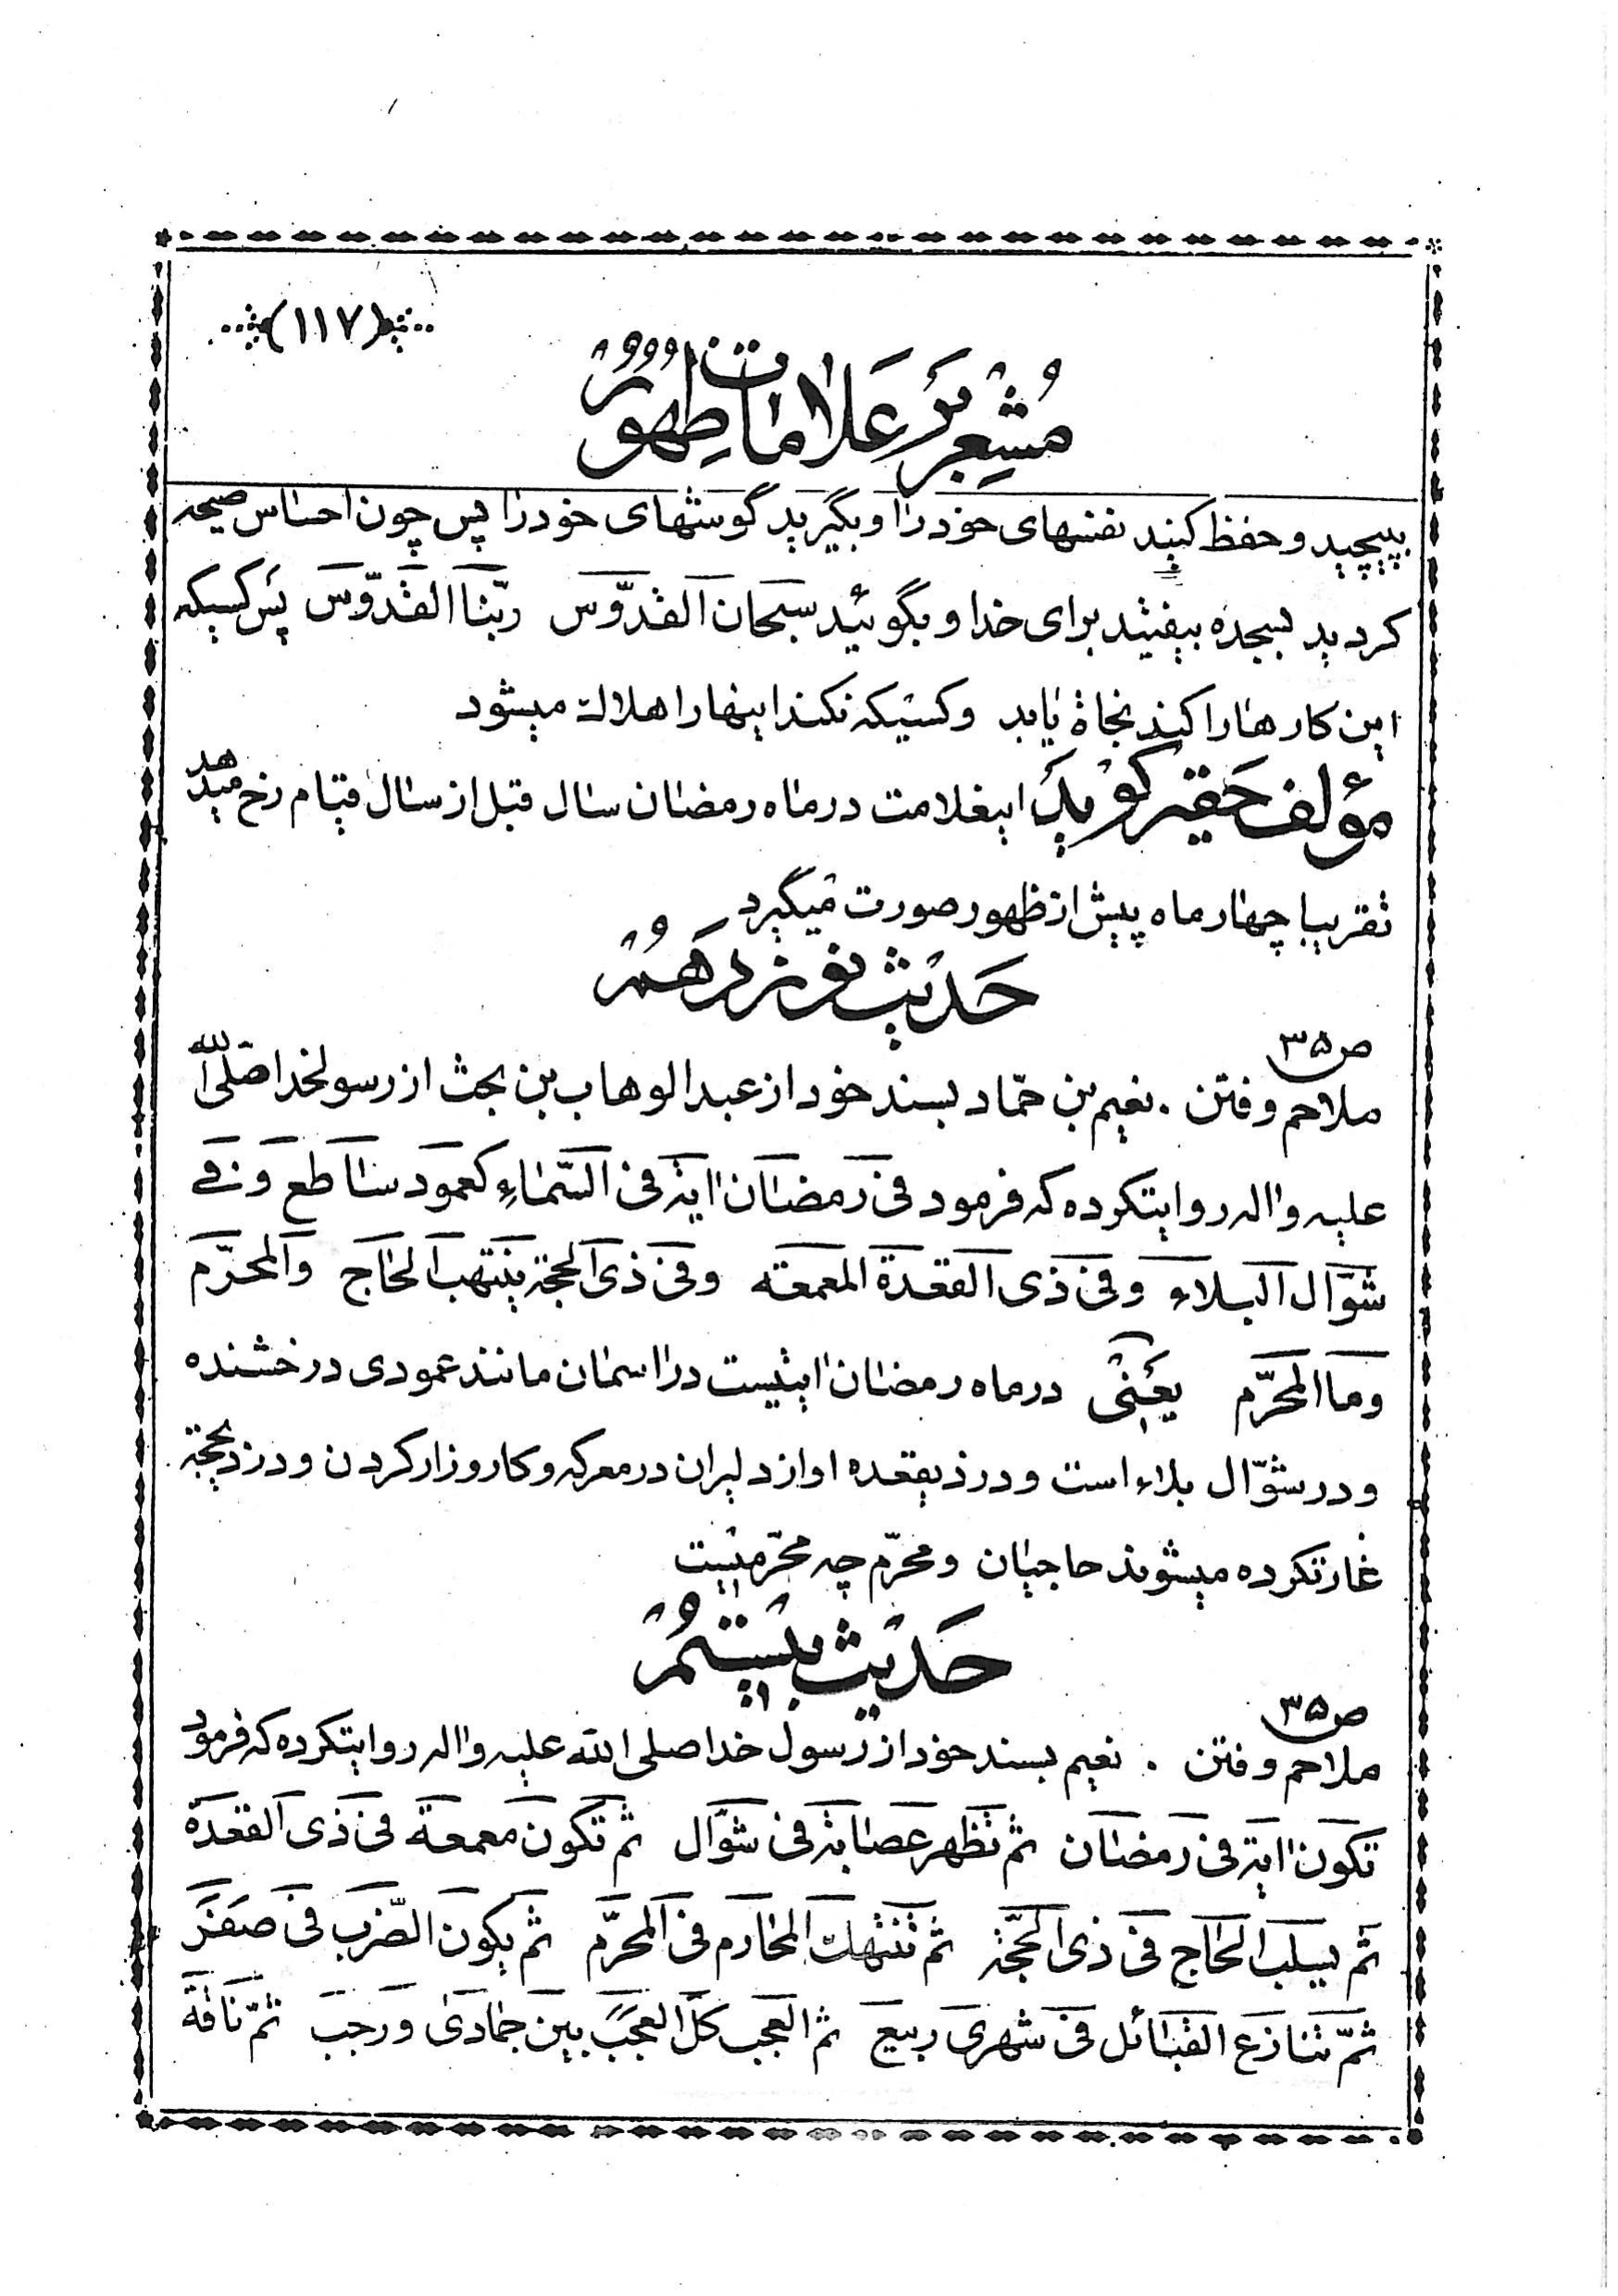 (۱۱۷)
مُشْعِر بَر عَلامات ظهُور
بپیچید و حفظ کنید نفسهای خود را و بگیرید گوشهای خود را پس چون احساس صیحه
کردید بسجده بیفتید برای خدا و بگوئید سبحان القدّوس ربّنا القدّوس پس کسیکه
این کارها را کند نجاة یابد و کسیکه نکند اینها را هلاک میشود
مؤلف حقیر گوید اینعلامت در ماه رمضان سال قبل از سال قیام رخ میدهد
تقریبا چهار ماه پیش از ظهور صورت میگیرد
حَدیث نوزدهُم
ص۳۵
ملاحم و فتن . نعیم بن حمّاد بسند خود از عبدالوهاب بن بحث از رسولخدا صلّی الله
علیه واله روایتکرده که فرمود فی رمضان ایة فی السّماءِ کعمود ساطع و فی
شوّال البلاء و فی ذی القعدة المعمعه و فی ذی الحجة ینتهب الحاج والمحرّم
و ما المحرّم یعنی در ماه رمضان ایتیست در اسمان مانند عمودی درخشنده
و در شوّال بلاء است و در ذیقعده اواز دلیران در معرکه و کارو زار کردن و در ذیحجة
غارتکرده میشوند حاجیان و محرّم چه محرّمیست
حَدیث بیستُم
ص۳۵
ملاحم و فتن . نعیم بسند خود از رسول خدا صلی الله علیه واله روایتکرده که فرمود
تکون ایة فی رمضان ثم تظهر عصابة فی شوّال ثم تکون معمعة فی ذی القعدة
ثم یسلب الحاج فی ذی الحجّة ثم تنتهك المحارم فی المحرّم ثم یکون الضّرب فی صفر
ثمّ تتنازع القبائل فی شهری ربیع ثم العجب کلّ العجب بین جمادی و رجب ثمّ ناقة